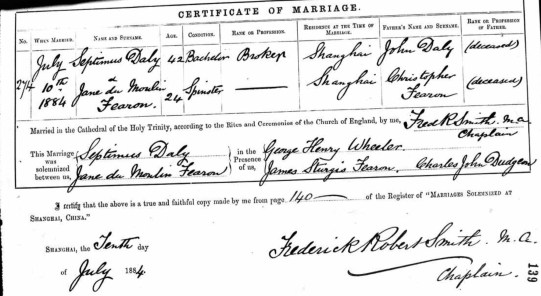 CERTIFICATE OF MARRIAGE.
No. WHEN MARRIED. NAME AND SURNAME. AGE. CONDITION. RANK OR PROFESSION. RESIDENCE AT THE TIME OF MARRIAGE. FATHER'S NAME AND SURNAME. RANK OR PROFESSION OF FATHER.
274 July 10th 1884 Septimus Daly 42 Bachelor Broker Shanghai John Daly (deceased)
&
Jane du Moulin Fearon. 24 Spinster — Shanghai Christopher Fearon (deceased)
Married in the Cathedral of the Holy Trinity, according to the Rites and Ceremonies of the Church of England, by me, Fred R Smith. M.A. Chaplain
This Marriage was solemnized between us, Septimus Daly & Jane du Moulin Fearon in the Presence of us, George Henry Wheeler. James Sturgis Fearon. Charles John Dudgeon
I certify that the above is a true and faithful copy made by me from page 140 of the Register of "MARRIAGES SOLEMNIZED AT
SHANGHAI, CHINA."
SHANGHAI, the Tenth day
of July 1884.
Frederick Robert Smith. M.A.
Chaplain.
139